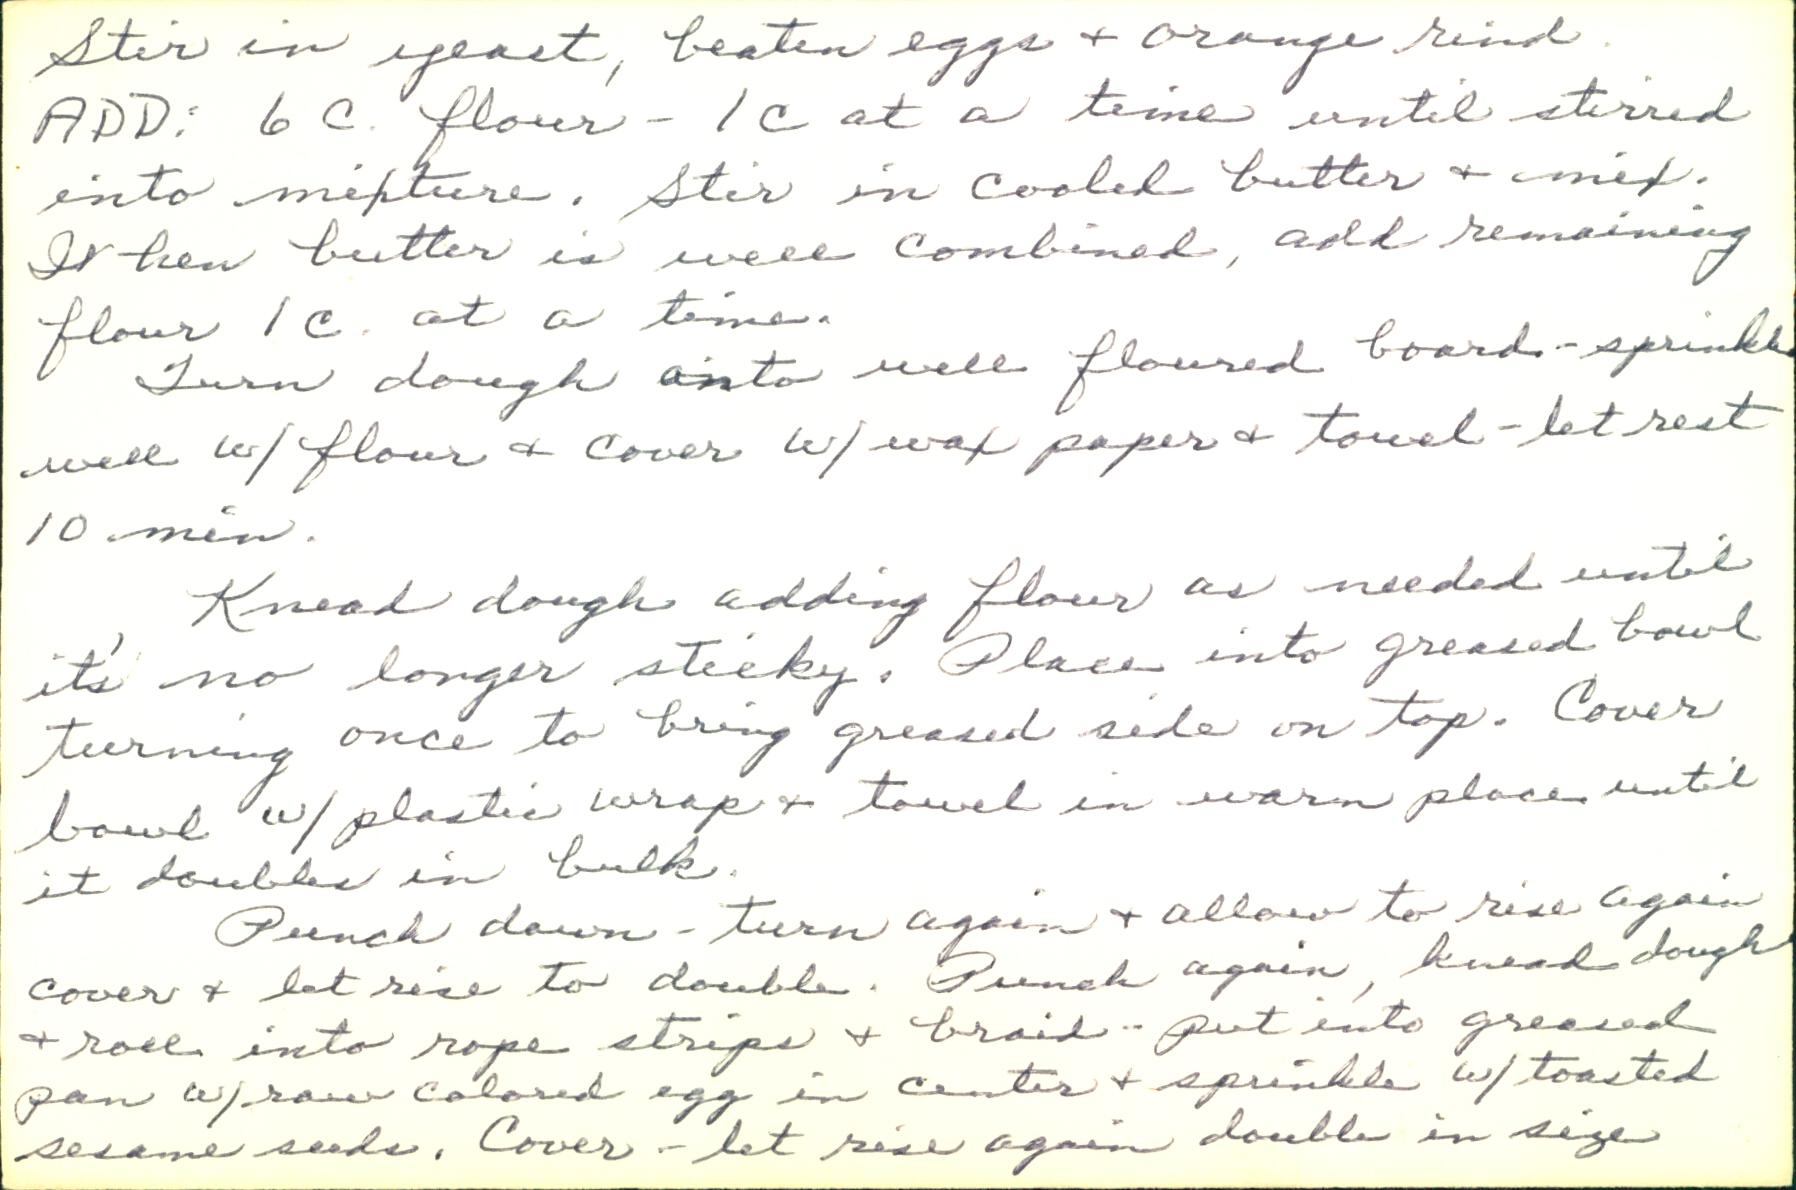 Stir in yeast, beaten eggs + orange rind.
ADD: 6 C. flour - 1 C at a time until stirred
into mixture. Stir in cooled butter + mix.
When butter is well combined, add remaining
flour 1 C. at a time.
Turn dough onto well floured board - sprinkle
well w/ flour + cover w/ wax paper + towel - let rest
10 min.
Knead dough adding flour as needed until
it's no longer sticky. Place into greased bowl
turning once to bring greased side on top. Cover
bowl w/ plastic wrap + towel in warm place until
it doubles in bulk.
Punch down - turn again + allow to rise again
cover + let rise to double. Punch again, knead dough
+ roll into rope strips + braid - put into greased
pan w/ raw colored egg in center + sprinkle w/ toasted
sesame seeds. Cover - let rise again double in size